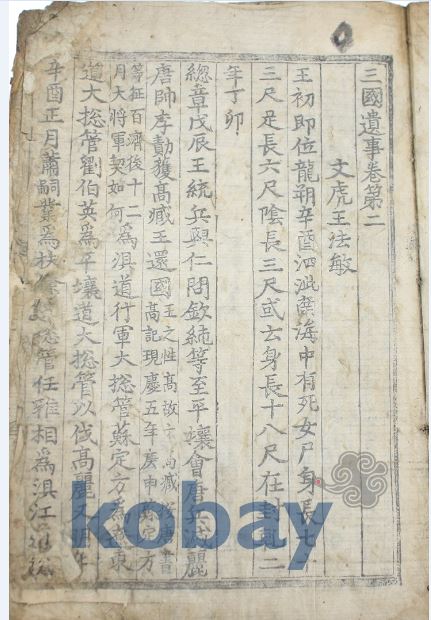 三國遺事卷第二
文虎王法敏
王初即位龍朔辛酉泗沘南海中有死女尸身長七
三尺足長六尺陰長三尺或云身長十八尺在封乾二
年丁卯
總章戊辰王統兵與仁問欽純等至平壤會唐兵滅麗
唐帥李勣獲高臧王還國
王之性高故高臧按唐書
高記現慶五年庚申蘇定方
等征百濟後十二
月大將軍契如何
為浿道行軍大摠管蘇定方為東
道大摠管劉伯英為平壤道大摠管以伐高麗又明年
辛酉正月蕭嗣業為扶餘摠管任雅相為浿江
kobay